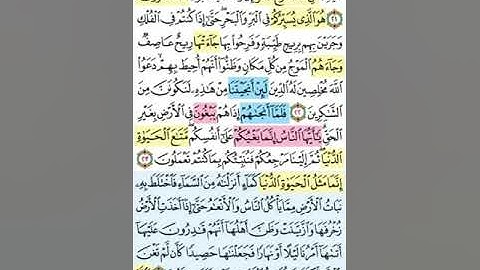 هُوَ ٱلَّذِى يُسَيِّرُكُمْ فِى ٱلْبَرِّ وَٱلْبَحْرِ حَتَّىٰٓ إِذَا كُنتُمْ فِى ٱلْفُلْكِ
وَجَرَيْنَ بِهِم بِرِيحٍ طَيِّبَةٍ وَفَرِحُوا۟ بِهَا جَآءَتْهَا رِيحٌ عَاصِفٌ
وَجَآءَهُمُ ٱلْمَوْجُ مِن كُلِّ مَكَانٍ وَظَنُّوٓا۟ أَنَّهُمْ أُحِيطَ بِهِمْ دَعَوُا۟
ٱللَّهَ مُخْلِصِينَ لَهُ ٱلدِّينَ لَئِنْ أَنجَيْتَنَا مِنْ هَٰذِهِۦ لَنَكُونَنَّ مِنَ
ٱلشَّٰكِرِينَ ٢٢ فَلَمَّآ أَنجَىٰهُمْ إِذَا هُمْ يَبْغُونَ فِى ٱلْأَرْضِ بِغَيْرِ
ٱلْحَقِّ يَٰٓأَيُّهَا ٱلنَّاسُ إِنَّمَا بَغْيُكُمْ عَلَىٰٓ أَنفُسِكُم مَّتَٰعَ ٱلْحَيَوٰةِ
ٱلدُّنْيَا ثُمَّ إِلَيْنَا مَرْجِعُكُمْ فَنُنَبِّئُكُم بِمَا كُنتُمْ تَعْمَلُونَ ٢٣
إِنَّمَا مَثَلُ ٱلْحَيَوٰةِ ٱلدُّنْيَا كَمَآءٍ أَنزَلْنَٰهُ مِنَ ٱلسَّمَآءِ فَٱخْتَلَطَ بِهِۦ
نَبَاتُ ٱلْأَرْضِ مِمَّا يَأْكُلُ ٱلنَّاسُ وَٱلْأَنْعَٰمُ حَتَّىٰٓ إِذَآ أَخَذَتِ ٱلْأَرْضُ
زُخْرُفَهَا وَٱزَّيَّنَتْ وَظَنَّ أَهْلُهَآ أَنَّهُمْ قَٰدِرُونَ عَلَيْهَآ
أَتَىٰهَآ أَمْرُنَا لَيْلًا أَوْ نَهَارًا فَجَعَلْنَٰهَا حَصِيدًا كَأَن لَّمْ تَغْنَ